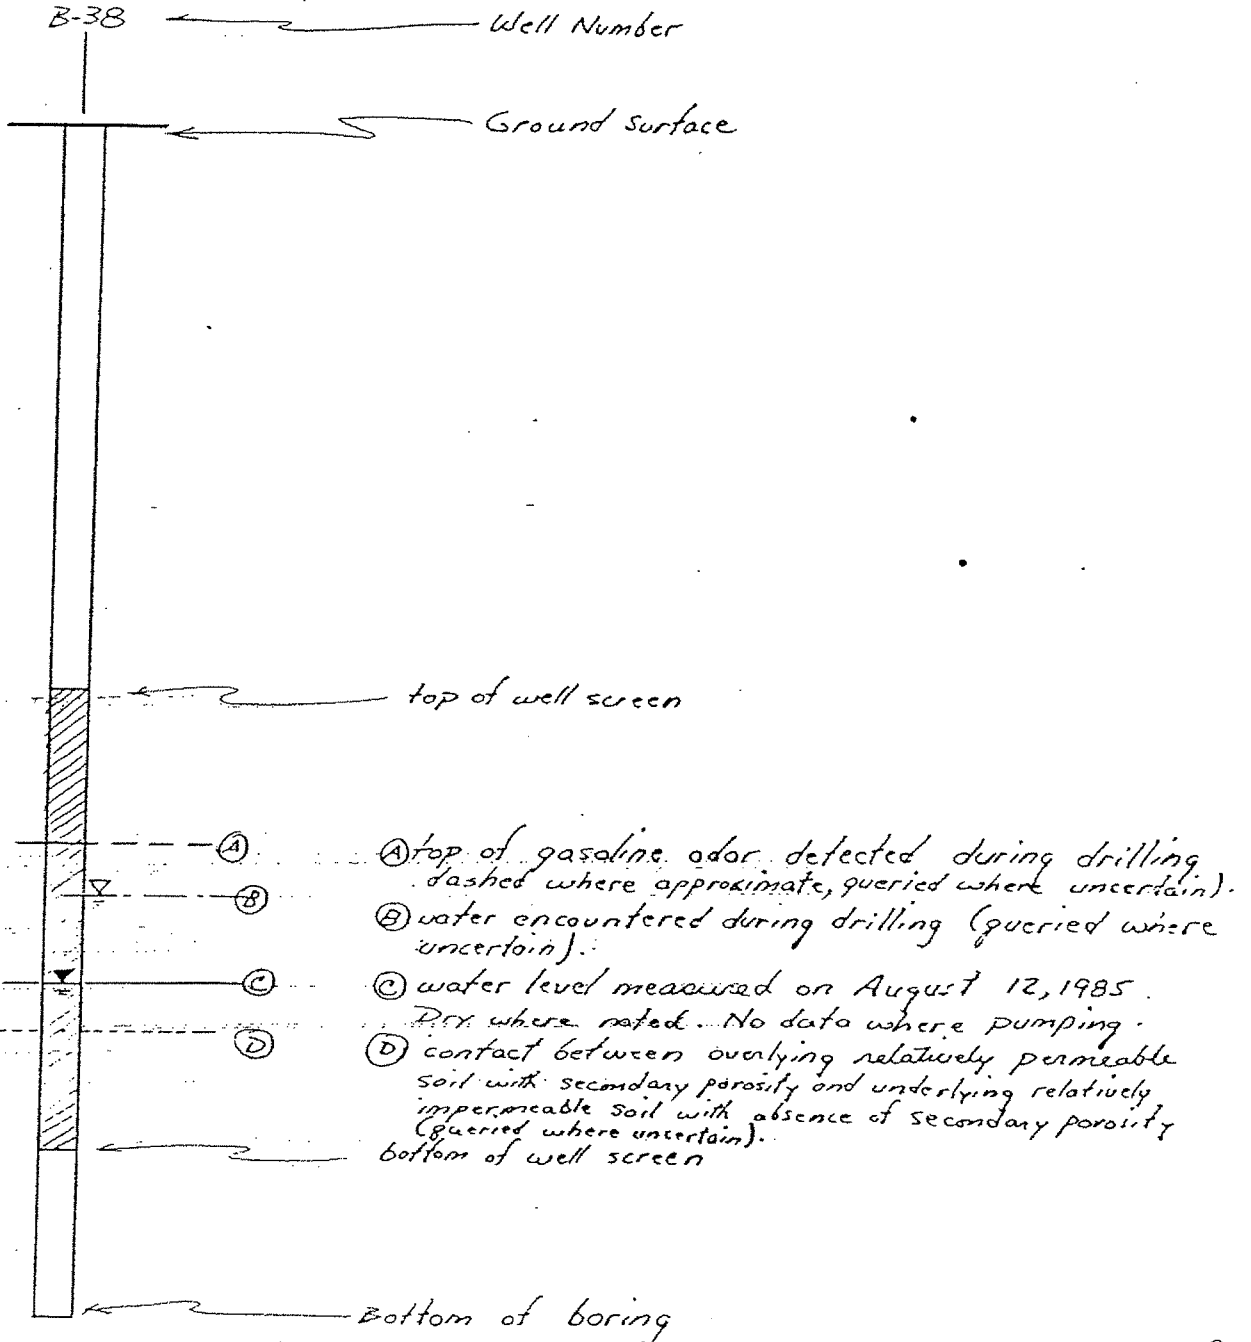 B-38
Well Number
Ground surface
top of well screen
Ⓐ
Ⓐ top of gasoline odor detected during drilling
dashed where approximate, queried where uncertain).
Ⓑ
Ⓑ water encountered during drilling (queried where
uncertain).
Ⓒ
Ⓒ water level measured on August 12, 1985.
Dry where noted. No data where pumping.
Ⓓ
Ⓓ contact between overlying relatively permeable
soil with secondary porosity and underlying relatively
impermeable soil with absence of secondary porosity
(queried where uncertain).
bottom of well screen
Bottom of boring